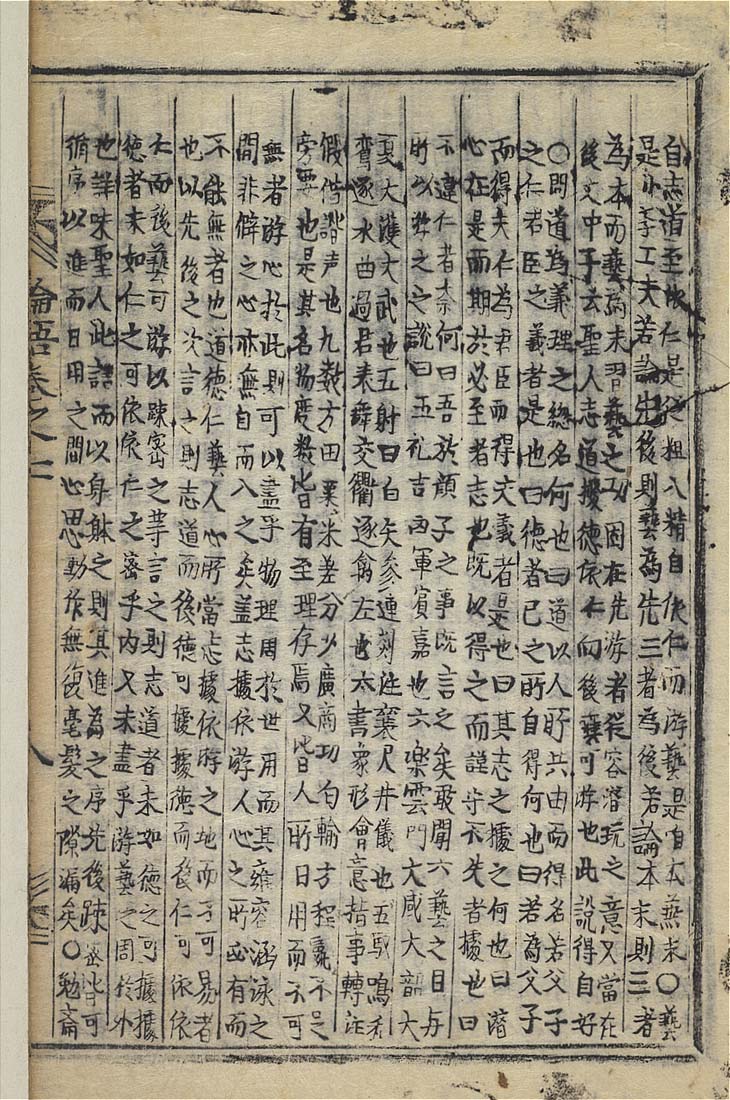 自志道至依仁是從粗入精自依仁而游藝是自本兼末○藝
是小學工夫若論先後則藝為先三者為後若論本末則三者
為本而藝為末習藝之功固在先游者從容潛玩之意又當在
後文中子云聖人志道據德依仁而後藝可游也此說得自好
○問道為義理之總名何也曰道以人所共由而得名若父子
之仁君臣之義者是也曰德者己之所自得何也曰若為父子
而得夫仁為君臣而得夫義者是也曰其志之據之何也曰潛
心在是而期於必至者志也既以得之而謹守不失者據也曰
不違仁者柰何曰吾於顔子之事既言之矣敢聞六藝之目与
所以游之之說曰五礼吉凶軍賓嘉也六楽雲門大咸大韶大
夏大濩大武也五射曰白矢參連剡注襄尺井儀也五馭鳴和
鸞逐水曲過君表舞交衢逐禽左也六書象形會意指事轉注
假借諧声也九数方田粟米差分少廣商功句輸方程贏不足
旁要也是其名物度数皆有至理存焉又皆人所日用而不可
無者游心於此則可以盡乎物理周於世用而其雍容涵泳之
間非僻之心亦無自而入之矣盖志據依游人心之所必有而
不能無者也道德仁藝人心所當志據依游之地而不可易者
也以先後之次言之則志道而後德可據據德而後仁可依依
仁而後藝可游以踈密之等言之則志道者未如德之可據據
德者未如仁之可依依仁之密乎内又未盡乎游藝之周於外
也詳味聖人此語而以身躰之則其進為之序先後踈密皆可
循序以進而日用之間心思動作無復毫髮之隙漏矣○勉齋
論語卷之七 八